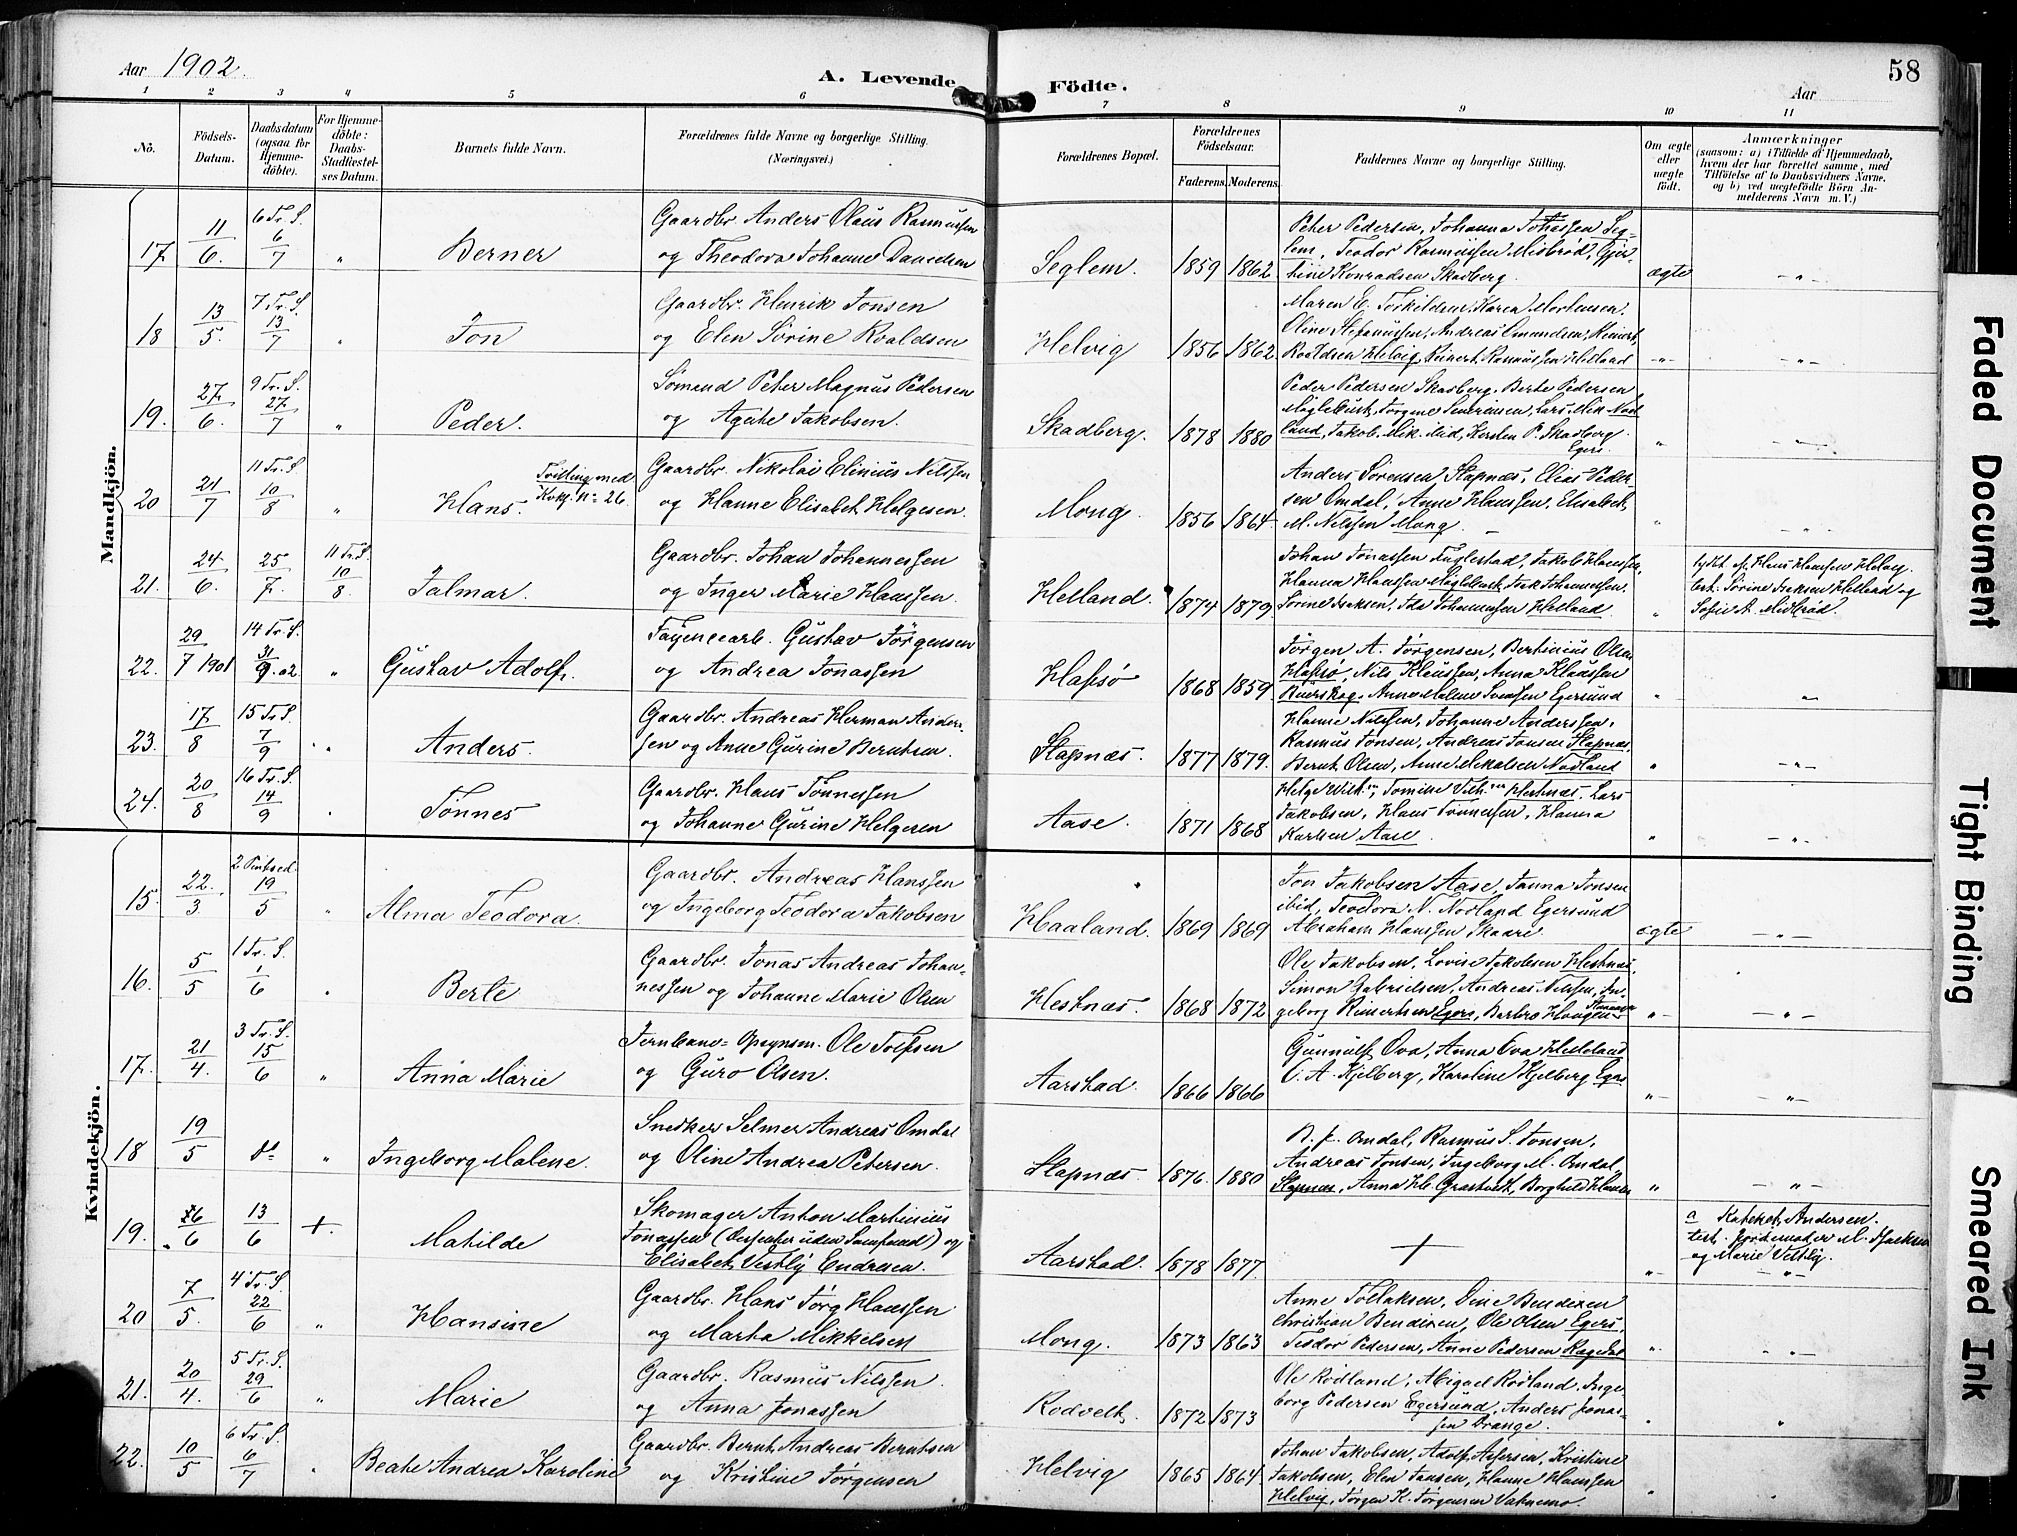 Aar 1902.
A. Levende Födte.
58
Aar
1 2 3 4 5 6 7 8 9 10 11
No.
Födsels-
Datum.
Daabsdatum
(ogsaa for
Hjemme-
döbte).
For Hjemme-
döbte:
Daabs-
Stadfæstel-
ses Datum.
Barnets fulde Navn.
Forældrenes fulde Navne og borgerlige Stilling.
(Næringsvei.)
Forældrenes Bopæl.
Forældrenes
Födselsaar.
Faderens. Moderens.
Faddernes Navne og borgerlige Stilling.
Om ægte
eller
uægte
födt.
Anmærkninger
(saasom: a) i Tilfælde af Hjemmedaab,
hvem der har forrettet samme, med
Tilföielse af to Daabsvidners Navne,
og b) ved uægtefödte Börn An-
melderens Navn m. V.)
Mandkjön.
17. 11/6. 6 Tr. S. 6/7 " Berner
Gaardbr Anders Olaus Rasmussen
og Theodora Johanne Danielsen
Seglem. 1859 1862
Peter Pedersen, Johanna Johassen Seg-
lem, Teodor Rasmussen Midbrød, Gjer-
tine Konradsen Skadberg.
ægte - " -
18 13/5. 7 Tr. S. 13/7 " Jon
Gaardbr. Henrik Jonsen
og Elen Sørine Roaldsen
Helvig 1856 1862
Maren E. Torkildsen, Karen Mortensen.
Oline Stefanussen, Andreas Omundsen, Reinert
Roaldsen Helvig, Reinert Rasmussen Helland
- " - - " -
19. 27/6. 9 Tr. S. 27/7 " Peder.
Sømand Peter Magnus Pedersen
og Agathe Jakobsen.
Skadberg. 1878 1880
Peder Pedersen Skadberg. Berte Pedersen
Møglebust, Jørgine Severinsen, Lars Mik. Nod
land, Jakob Mik. ibid, Kersten P. Skadberg
Egers.
" - " -
20 21/7 11 Tr. S. 10/8 " Hans.
Tvilling med
Kvkj. n= 26
Gaardbr. Nikolai Elinius Nilssen
og Hanne Elisabet Helgesen.
Mong. 1856 1864
Anders Sørensen Stapnæs, Elias Peder-
sen Omdal, Anne Hanssen, Elisabet
M. Nilssen Mong. -
" - " -
21. 24/6. 25/7. 11 Tr. S. 10/8. Jalmar.
Gaardbr. Johan Johannessen
og Inger Marie Hanssen.
Helland. 1874 1879
Johan Jonassen Fuglestad, Jakob Hanssen,
Hanna Hanssen Møglebust, Isak Johannessen.
Sørine Isaksen, Ida Johannessen Helland
"
Hans Hanssen Helvig.
test. Sørine Isaksen Helland og
Sofie A. Midbrød.
22. 29/7 1901 14 Tr. S. 31/9.02 " Gustav Adolf.
Fayencearb. Gustav Jörgensen
og Andrea Jonassen
Hafsö 1868 1859
Jørgen A. Jørgensen, Bertinius Olsen
Hafsø, Nils Klaussen, Anna Klaussen
Ruerskog, Anne Malene Svensen Egersund
" "
23. 17/8 15 Tr. S. 7/9 " Anders.
Gaardbr. Andreas Herman Ander-
sen og Anne Gurine Berntsen.
Stapnæs. 1877 1879.
Hanne Nilssen, Johanne Anderssen,
Rasmus Jonsen, Andreas Jonsen Stapnæs,
Bernt Olsen, Anne Mikalsen Nodland
" - " -
24. 20/8 16 Tr. S. 14/9 Tønnes
Gaardbr. Hans Tønnessen
og Johanne Gurine Helgesen
Aase. 1871 1868
Helge Vilh., Tomine Vilh. Hestnæs. Lars
Jakobsen, Hans Tønnessen, Hanna
Karlsen Aase.
" - " -
Kvindekjön.
15. 22/3. 2 Pintsed. 19/5 " Alma Teodora.
Gaardbr. Andreas Hanssen
og Ingeborg Teodora Jakobsen
Haaland. 1869 1869
Jon Jakobsen Aase, Janna Jonsen
ibid, Teodora N. Nodland Egersund
Abraham Hanssen Skaare.
ægte - " -
16. 5/5 1 Tr. S. 1/6 " Berte
Gaardbr. Jonas Andreas Johan-
nessen og Johanne Marie Olsen
Hestnæs. 1868 1872
Ole Jakobsen, Lovise Jakobsen Hestnæs,
Simon Gabrielsen, Andreas Nilssen, In-
geborg Reinertsen Egers, Barbro Haugen
" - - " -
17. 21/4. 3 Tr. S. 15/6 " Anna Marie
Jernbane-Opsynsm. Ole Tolfsen
og Guro Olsen.
Aarstad. 1866 1866
Gunnulf Ova, Anna Ova Helleland
C. A. Kjelberg, Karoline Kjelberg Egers
" - - " -
18 19/5 do " Ingeborg Malene.
Snedker Selmer Andreas Omdal
og Oline Andrea Petersen.
Stapnæs. 1876. 1880
B. J. Omdal, Rasmus S. Jonsen,
Andreas Jonsen, Ingeborg M. Omdal,
Stapnæs, Anna H. Grastveit, Borghild Hansen
" - " -
19. 6/6 13/6 + Matilde
Skomager Anton Martinius
Jonassen (Dissenter uden Samfund) og
Elisabet Vestly Endresen.
Aarstad. 1878 1877. +
" -
a Kateket Andersen.
test. Jordemoder M. Isaksen
og Marie Vestly.
- " -
20 7/5. 4 Tr. S. 22/6 " Hansine
Gaardbr. Hans Jörg Hanssen
og Marta Mikkelsen
Mong. 1873 1863
Anne Tollaksen, Dine Bendixen
Christian Bendixen, Ole Olsen Egers,
Teodor Pedersen, Anne Pedersen Ragstad
" "
21. 20/4 5 Tr. S. 29/6 " Marie
Gaardbr. Rasmus Nilssen.
og Anna Jonassen
Rodvelt 1872 1873
Ole Rödland, Abigael Rödland, Inge-
borg Pedersen Egersund, Anders Jonas-
sen Drange.
" "
22. 10/5 6 Tr. S. 6/7 " Beate Andrea Karoline
Gaardbr. Bernt Andreas Berntsen
og Kristine Jørgensen
Helvig 1865 1864
Johan Jakobsen, Adolf Assersen, Kristine
Jakobsen, Elen Jansen, Hanne Hanssen
Helvig, Jørgen K. Jørgensen Vatnemo.
" "
Faded Document
Tight Binding
Smeared Ink